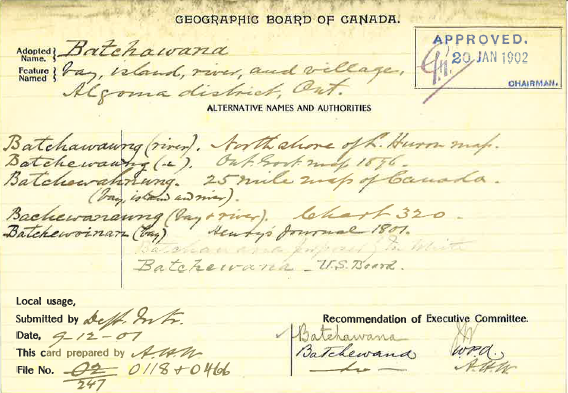 GEOGRAPHIC BOARD OF CANADA.
APPROVED.
20 JAN 1902
CHAIRMAN.
Adopted Name. } Batchawana
Feature Named } bay, island, river, and village,
Algoma district, Ont.
ALTERNATIVE NAMES AND AUTHORITIES
Batchawaung (river). North shore of L. Huron map.
Batchewaung ( " ). Ont. Govt map 1896.
Batchewahnung. 25 mile map of Canada.
(bay, island and river).
Bachewanaung (bay & river). Chart 320.
Batchewinan (bay) Henry's Journal 1807.
Batchawana proposed by
Batchewana - U.S. Board.
Local usage,
Submitted by Dept. Intr.
Date, 9-12-01
This card prepared by A.H.W
File No. 02/247 0118 + 0466
Recommendation of Executive Committee.
Batchawana
Batchewana W.P.A.
do A.H.W.